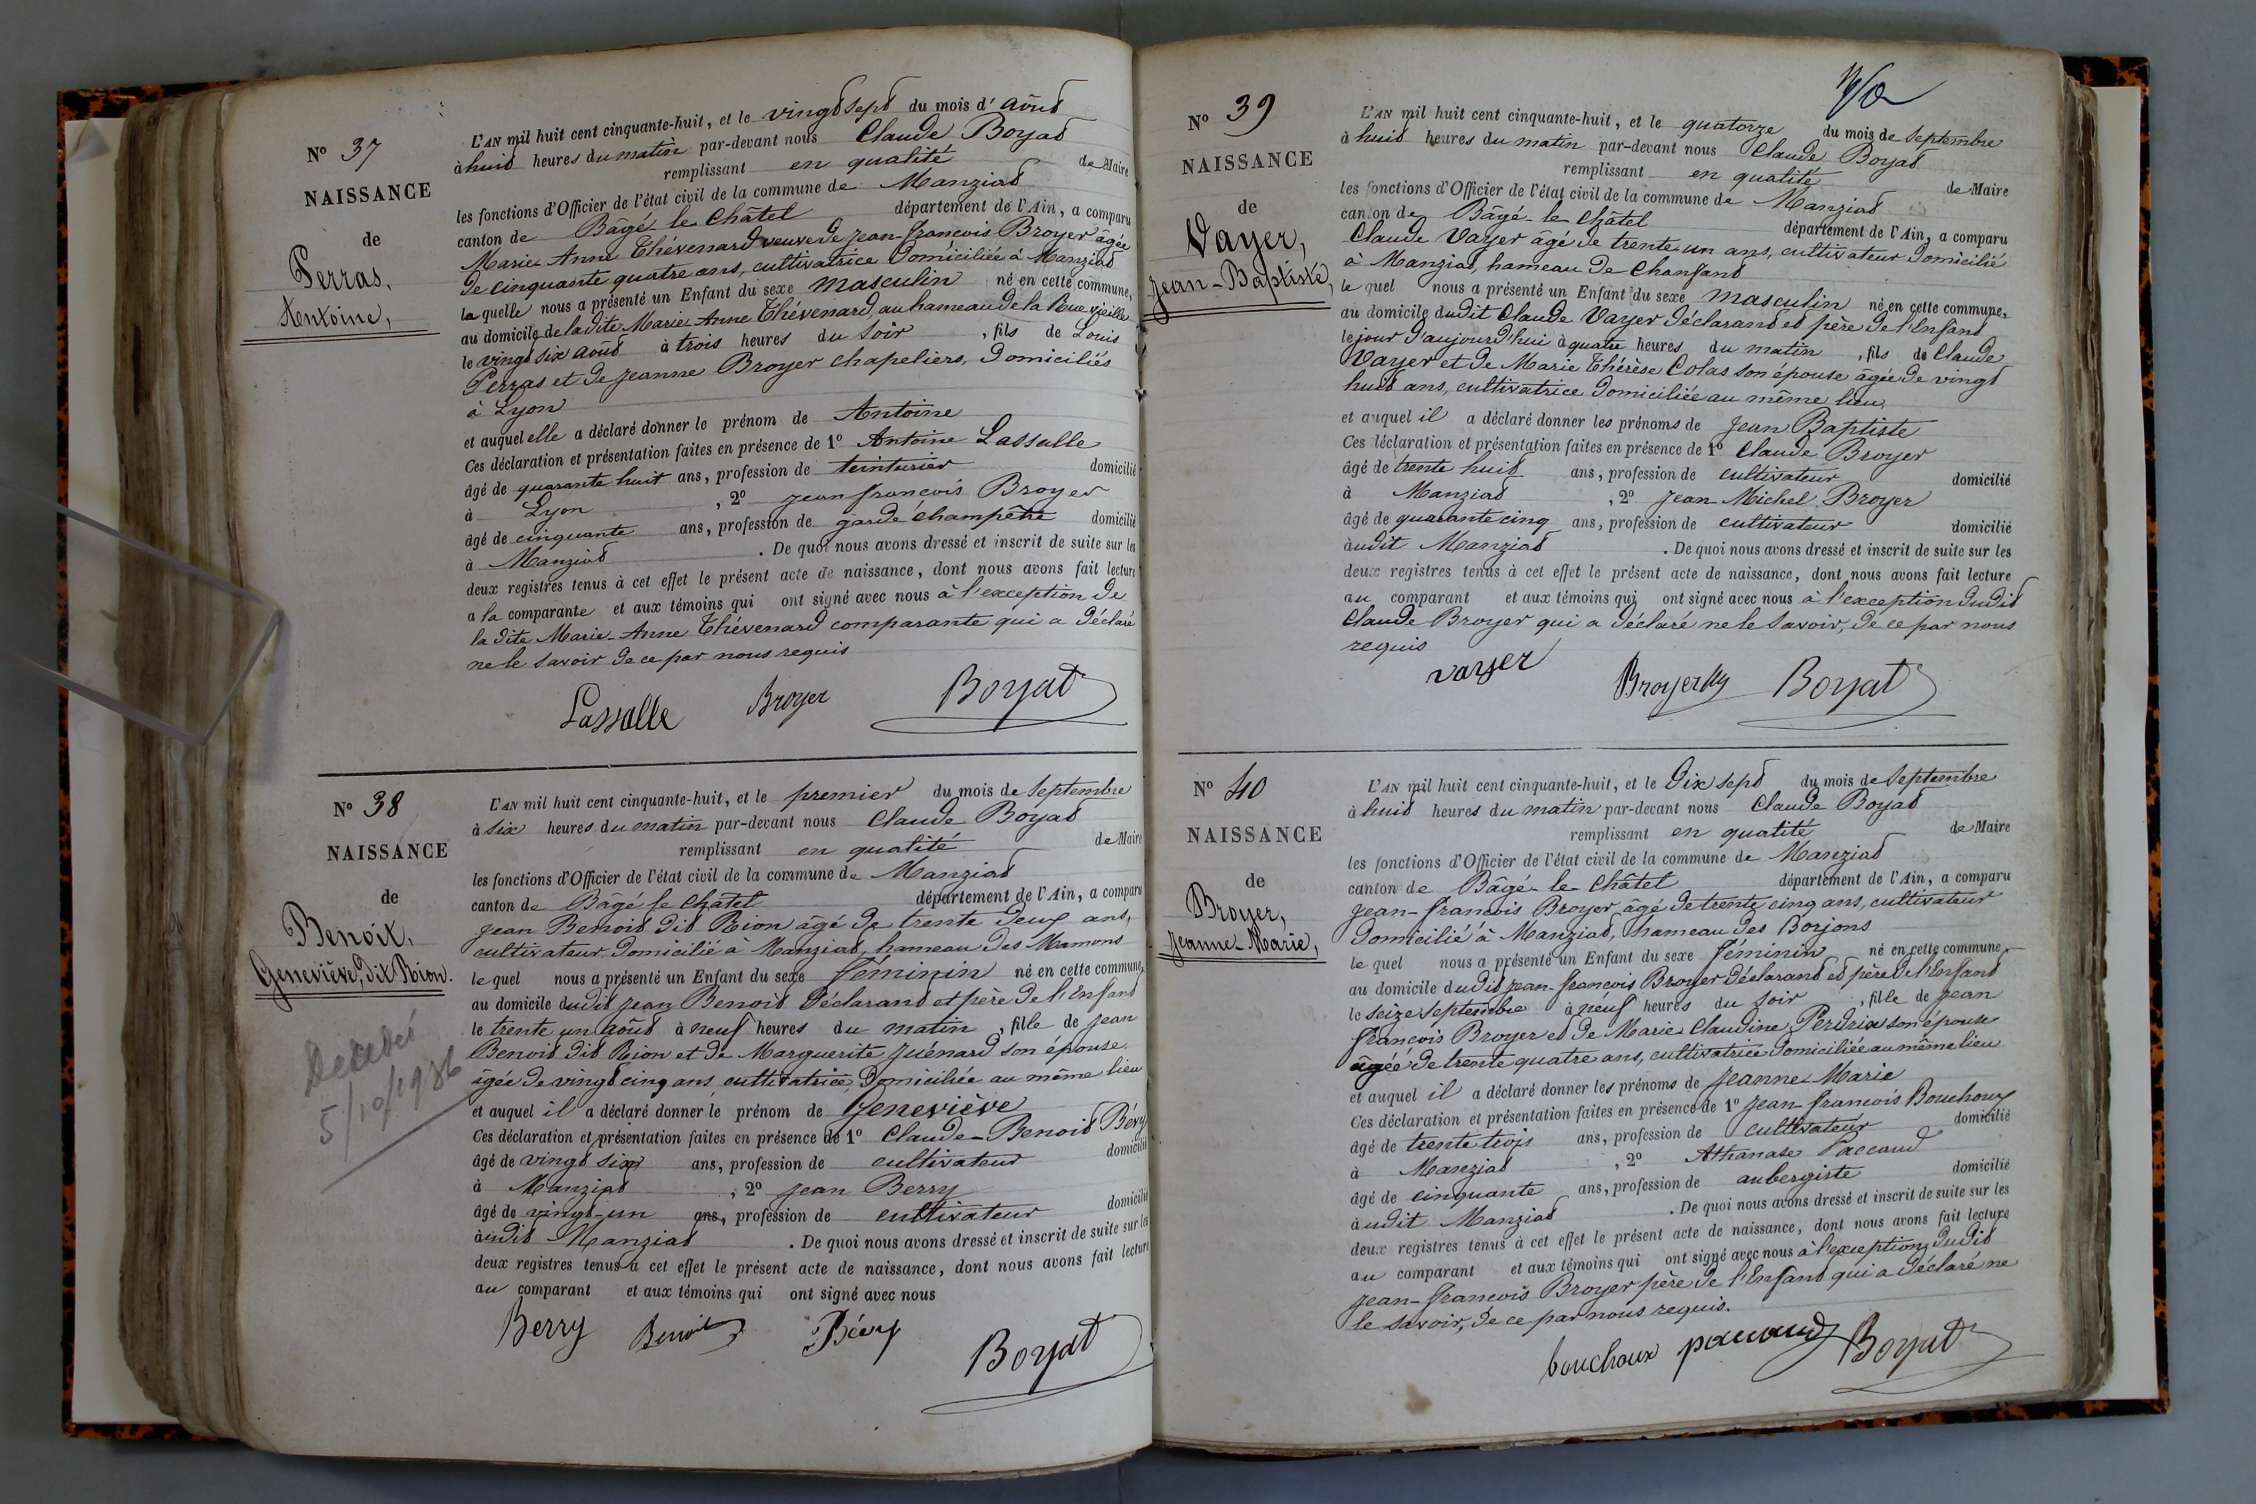 N° 37
NAISSANCE
de
Perras,
Antoine,
L'AN mil huit cent cinquante-huit, et le vingt sept du mois d' août
à huit heures du matin par-devant nous Claude Boyat
remplissant en qualité de Maire
les fonctions d'Officier de l'état civil de la commune de Manziat
canton de Bâgé le Châtel département de l'Ain, a comparu
Marie Anne Thévenard veuve de Jean-francois Broyer âgée
de cinquante quatre ans, cultivatrice domiciliée à Manziat
la quelle nous a présenté un Enfant du sexe masculin né en cette commune,
au domicile de la dite Marie Anne Thévenard au hameau de la Rue vieille
le vingt six août à trois heures du soir , fils de Louis
Perras et de Jeanne Broyer chapeliers, domiciliés
à Lyon
et auquel elle a déclaré donner le prénom de Antoine
Ces déclaration et présentation faites en présence de 1° Antoine Lassalle
âgé de quarante huit ans, profession de teinturier domicilié
à Lyon , 2° Jean francois Broyer
âgé de cinquante ans, profession de garde champêtre domicilié
à Manziat . De quoi nous avons dressé et inscrit de suite sur les
deux registres tenus à cet effet le présent acte de naissance, dont nous avons fait lecture
a la comparante et aux témoins qui ont signé avec nous à l'exception de
la dite Marie-Anne Thévenard comparante qui a déclaré
ne le savoir de ce par nous requis
Lassalle Broyer Boyat
N° 38
NAISSANCE
de
Benoit,
Geneviève, dit Rion.
Décédée
5/10/1936
L'AN mil huit cent cinquante-huit, et le premier du mois de septembre
à six heures du matin par-devant nous Claude Boyat
remplissant en qualité de Maire
les fonctions d'Officier de l'état civil de la commune de Manziat
canton de Bâgé le châtel département de l'Ain, a comparu
Jean Benoit dit Rion âgé de trente deux ans,
cultivateur domicilié à Manziat, hameau des Mamons
le quel nous a présenté un Enfant du sexe féminin né en cette commune,
au domicile dudit Jean Benoit déclarant et père de l'Enfant
le trente un août à neuf heures du matin , fille de Jean
Benoit dit Rion et de Marguerite Guénard son épouse
âgée de vingt cinq ans cultivatrice, domiciliée au même lieu
et auquel il a déclaré donner le prénom de Geneviève
Ces déclaration et présentation faites en présence de 1° Claude-Benoit Bévy
âgé de vingt six ans, profession de cultivateur domicilié
à Manziat , 2° Jean Berry
âgé de vingt-un ans, profession de cultivateur domicilié
àudit Manziat . De quoi nous avons dressé et inscrit de suite sur les
deux registres tenus à cet effet le présent acte de naissance, dont nous avons fait lecture
au comparant et aux témoins qui ont signé avec nous
Berry Benoit Bévy Boyat
N° 39
NAISSANCE
de
Vayer,
Jean-Baptiste,
L'AN mil huit cent cinquante-huit, et le quatorze du mois de septembre
à huit heures du matin par-devant nous Claude Boyat
remplissant en qualité de Maire
les fonctions d'Officier de l'état civil de la commune de Manziat
canton de Bâgé-le-Châtel département de l'Ain, a comparu
Claude Vayer âgé de trente un ans, cultivateur domicilié
à Manziat, hameau de Chanfant
le quel nous a présenté un Enfant du sexe masculin né en cette commune,
au domicile dudit Claude Vayer déclarant et père de l'Enfant
le jour d'aujourd'hui à quatre heures du matin , fils de Claude
Vayer et de Marie Thérèse Colas son épouse âgée de vingt
huit ans, cultivatrice domiciliée au même lieu,
et auquel il a déclaré donner les prénoms de Jean Baptiste
Ces déclaration et présentation faites en présence de 1° Claude Broyer
âgé de trente huit ans, profession de cultivateur domicilié
à Manziat , 2° Jean-Michel Broyer
âgé de quarante cinq ans, profession de cultivateur domicilié
àudit Manziat . De quoi nous avons dressé et inscrit de suite sur les
deux registres tenus à cet effet le présent acte de naissance, dont nous avons fait lecture
au comparant et aux témoins qui ont signé avec nous à l'exception dudit
Claude Broyer qui a déclaré ne le savoir, de ce par nous
requis
vayer Broyer Boyat
N° 40
NAISSANCE
de
Broyer,
Jeanne-Marie,
L'AN mil huit cent cinquante-huit, et le dix sept du mois de septembre
à huit heures du matin par-devant nous Claude Boyat
remplissant en qualité de Maire
les fonctions d'Officier de l'état civil de la commune de Manziat
canton de Bâgé-le-Châtel département de l'Ain, a comparu
Jean-francois Broyer âgé de trente cinq ans, cultivateur
domicilié à Manziat, hameau des Borjons
le quel nous a présenté un Enfant du sexe féminin né en cette commune,
au domicile dudit Jean-francois Broyer déclarant et père de l'Enfant
le seize septembre à neuf heures du soir , fille de Jean
francois Broyer et de Marie Claudine Perdrix son épouse
âgée de trente quatre ans, cultivatrice domiciliée au même lieu
et auquel il a déclaré donner les prénoms de Jeanne-Marie
Ces déclaration et présentation faites en présence de 1° Jean-francois Bouchoux
âgé de trente trois ans, profession de cultivateur domicilié
à Manziat , 2° Athanase Paccaud
âgé de cinquante ans, profession de aubergiste domicilié
àudit Manziat . De quoi nous avons dressé et inscrit de suite sur les
deux registres tenus à cet effet le présent acte de naissance, dont nous avons fait lecture
au comparant et aux témoins qui ont signé avec nous à l'exception dudit
Jean-francois Broyer père de l'Enfant qui a déclaré ne
le savoir, de ce par nous requis.
bouchoux paccaud Boyat